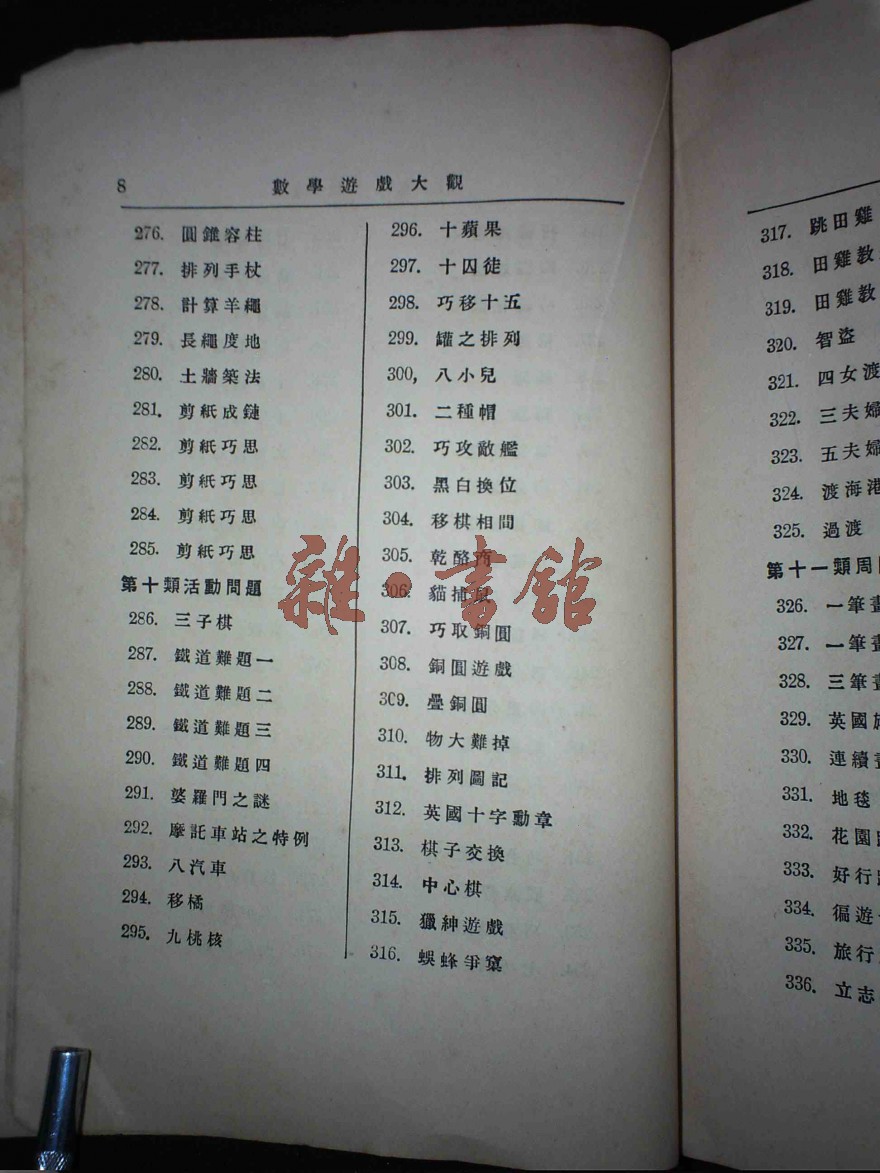 8 數學遊戲大觀
276. 圓錐容柱
277. 排列手杖
278. 計算羊繩
279. 長繩度地
280. 土牆築法
281. 剪紙成鏈
282. 剪紙巧思
283. 剪紙巧思
284. 剪紙巧思
285. 剪紙巧思
第十類活動問題
286. 三子棋
287. 鐵道難題一
288. 鐵道難題二
289. 鐵道難題三
290. 鐵道難題四
291. 婆羅門之謎
292. 摩託車站之特例
293. 八汽車
294. 移橘
295. 九桃核
296. 十蘋果
297. 十囚徒
298. 巧移十五
299. 罐之排列
300, 八小兒
301. 二種帽
302. 巧攻敵艦
303. 黑白換位
304. 移棋相間
305. 乾酪商
306. 貓捕鼠
307. 巧取銅圓
308. 銅圓遊戲
309. 疊銅圓
310. 物大難掉
311. 排列圖記
312. 英國十字勳章
313. 棋子交換
314. 中心棋
315. 獵紳遊戲
316. 蜈蜂爭窠
317. 跳田雞
318. 田雞教
319. 田雞教
320. 智盜
321. 四女渡
322. 三夫婦
323. 五夫婦
324. 渡海港
325. 過渡
第十一類周
326. 一筆畫
327. 一筆畫
328. 三筆畫
329. 英國
330. 連續
331. 地毯
332. 花園
333. 好行
334. 徧遊
335. 旅行
336. 立志
雜·書館